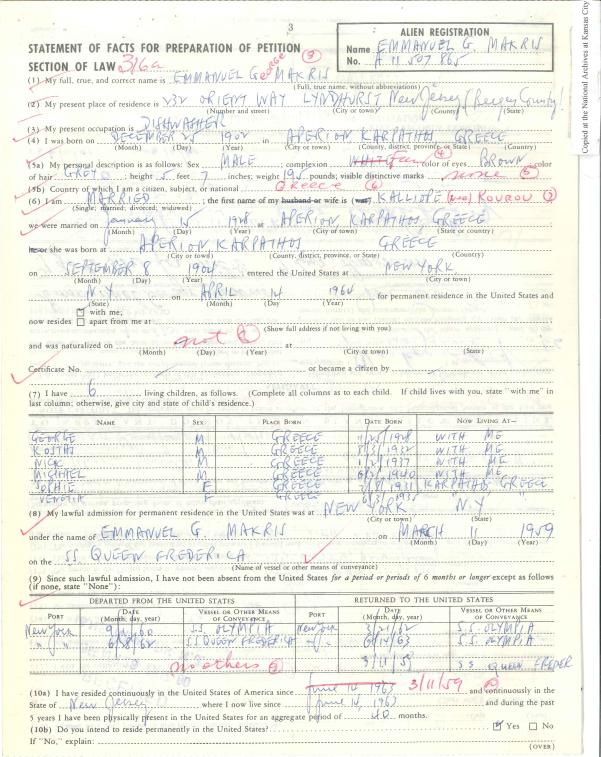 3
ALIEN REGISTRATION
Name EMMANUEL G. MAKRIS
No. A 11 507 865
STATEMENT OF FACTS FOR PREPARATION OF PETITION
SECTION OF LAW 316a
(1) My full, true, and correct name is EMMANUEL GEORGE MAKRIS
(Full, true name, without abbreviations)
(2) My present place of residence is 232 ORIENT WAY LYNDHURST New Jersey (Bergen County)
(Number and street) (City or town) (County) (State)
(3) My present occupation is DISHWASHER
(4) I was born on DECEMBER 25 1902 in APERION KARPATHOS GREECE
(Month) (Day) (Year) (City or town) (County, district, province, or State) (Country)
(5a) My personal description is as follows: Sex MALE; complexion WHITE fair color of eyes BROWN color
of hair GREY; height 5 feet 7 inches; weight 195 pounds; visible distinctive marks none
(5b) Country of which I am a citizen, subject, or national Greece
(6) I am MARRIED; the first name of my husband or wife is (was) KALLIOPE (nee) KOUROU
(Single; married; divorced; widowed)
we were married on January 15 1928 at APERION KARPATHOS GREECE
(Month) (Day) (Year) (City or town) (State or country)
he or she was born at APERION KARPATHOS GREECE
(City or town) (County, district, province, or State) (Country)
on SEPTEMBER 8 1904, entered the United States at NEW YORK
(Month) (Day) (Year) (City or town)
N.Y on APRIL 14 1964 for permanent residence in the United States and
(State) (Month) (Day) (Year)
with me;
now resides apart from me at
(Show full address if not living with you)
and was naturalized on not at
(Month) (Day) (Year) (City or town) (State)
Certificate No. or became a citizen by
(7) I have 6 living children, as follows. (Complete all columns as to each child. If child lives with you, state "with me" in
last column; otherwise, give city and state of child's residence.)
NAME SEX PLACE BORN DATE BORN NOW LIVING AT—
GEORGE M GREECE 1928 WITH ME
KOSTAS M GREECE 8/3/1932 WITH ME
NICK M GREECE 1937 WITH ME
MICHAEL M GREECE 1940 WITH ME
SOPHIE F GREECE 1931 KARPATHOS GREECE
VENETIA F GREECE 1935 " "
(8) My lawful admission for permanent residence in the United States was at NEW YORK N.Y
(City or town) (State)
under the name of EMMANUEL G. MAKRIS on MARCH 11 1959
(Month) (Day) (Year)
on the SS. QUEEN FREDERICA
(Name of vessel or other means of conveyance)
(9) Since such lawful admission, I have not been absent from the United States for a period or periods of 6 months or longer except as follows
(if none, state "None"):
DEPARTED FROM THE UNITED STATES RETURNED TO THE UNITED STATES
PORT DATE (Month, day, year) VESSEL OR OTHER MEANS OF CONVEYANCE PORT DATE (Month, day, year) VESSEL OR OTHER MEANS OF CONVEYANCE
New York S.S. OLYMPIA New York 3/21/62 S.S. OLYMPIA
" " 6/28/62 S.S QUEEN FREDERICA " " 6/14/63 S.S. OLYMPIA
no others 3/11/59 S S QUEEN FREDER
(10a) I have resided continuously in the United States of America since June 14, 1963 3/11/59 and continuously in the
State of New Jersey where I now live since June 14, 1963 and during the past
5 years I have been physically present in the United States for an aggregate period of 40 months.
(10b) Do you intend to reside permanently in the United States? Yes No
If "No," explain:
(OVER)
Copied at the National Archives at Kansas City